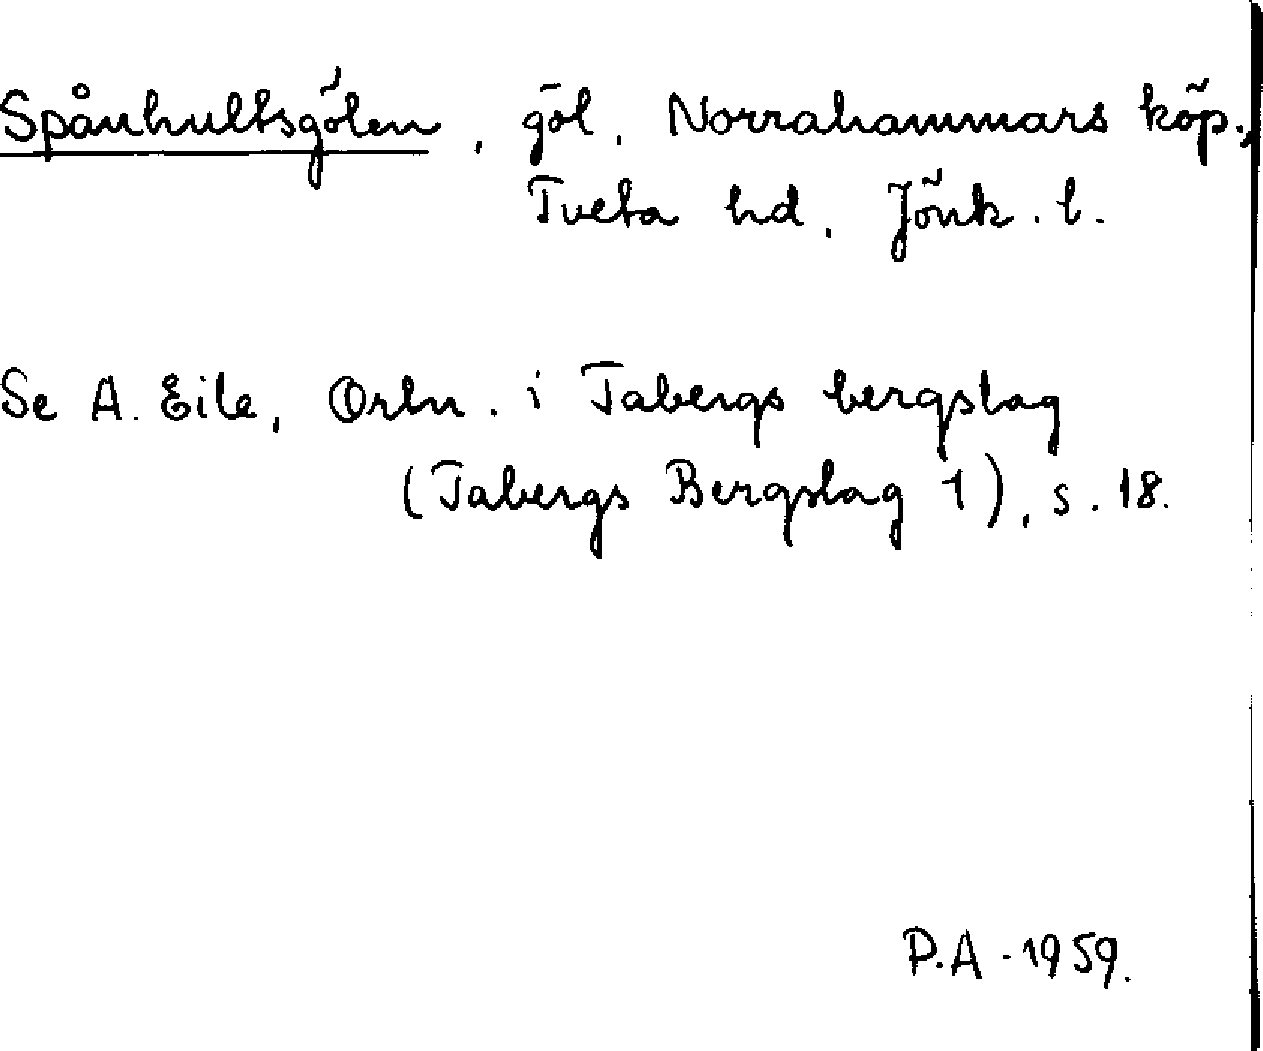 Spånhultsgölen, göl, Norrahammars köp.,
Tveta hd, Jönk. l.
Se A. Eile, Ortn. i Tabergs bergslag
(Tabergs Bergslag 1), s. 18.
P.A. 1959.